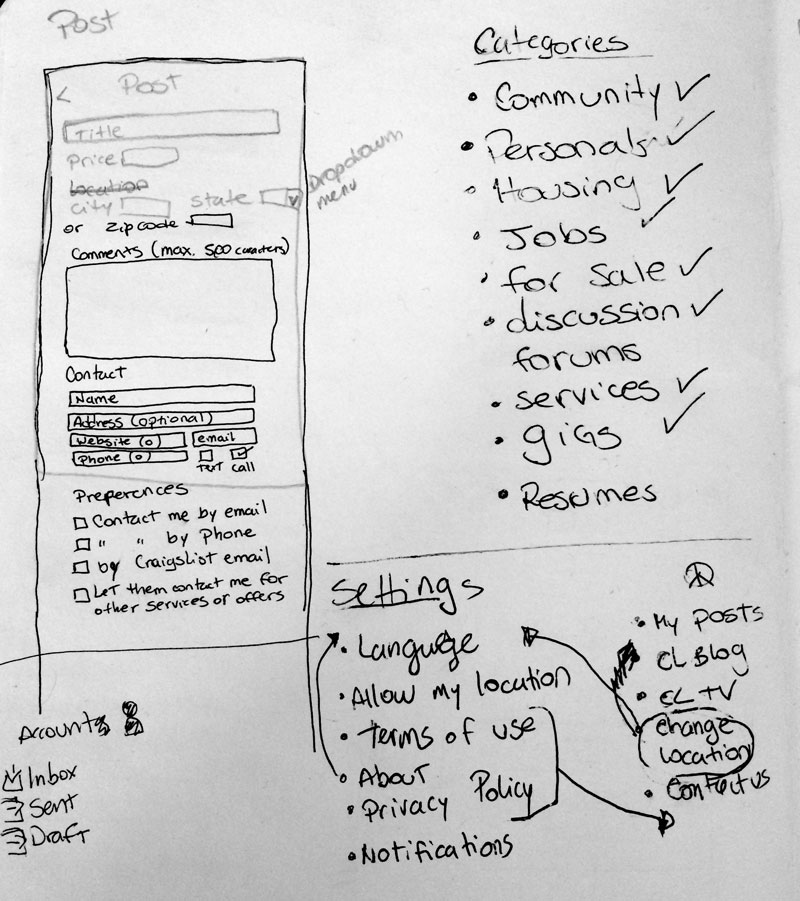 Post
< Post
Title
Price
location
city state
Dropdown
menu
or Zip code
Comments (max. 500 caracters)
Contact
Name
Address (optional)
Website (o) email
Phone (o)
text call
Preferences
Contact me by email
" " by Phone
by Craigslist email
Let them contact me for
other services or offers
Accounts
Inbox
Sent
Draft
Categories
• Community ✓
• Personals ✓
• Housing ✓
• Jobs ✓
• for sale ✓
• discussion ✓
forums
• services ✓
• gigs ✓
• Resumes
Settings
• Language
• Allow my location
• Terms of use
• About
• Privacy Policy
• Notifications
• My posts
CL Blog
• CL TV
• change
location
• Contact us